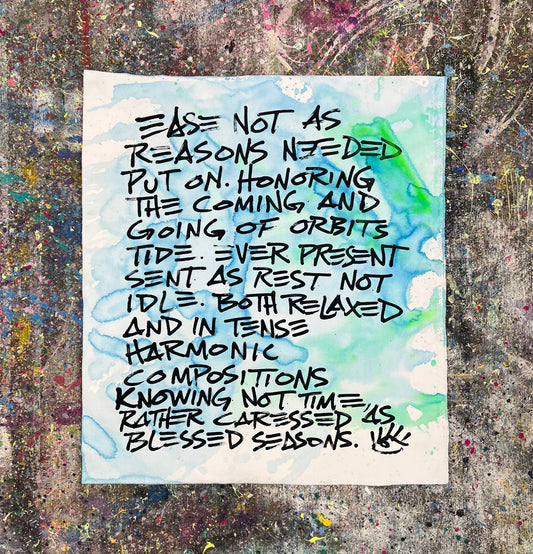 EASE NOT AS
REASONS NEEDED
PUT ON. HONORING
THE COMING AND
GOING OF ORBITS
TIDE. EVER PRESENT
SENT AS REST NOT
IDLE. BOTH RELAXED
AND IN TENSE
HARMONIC
COMPOSITIONS
KNOWING NOT TIME,
RATHER CARESSED AS
BLESSED SEASONS.